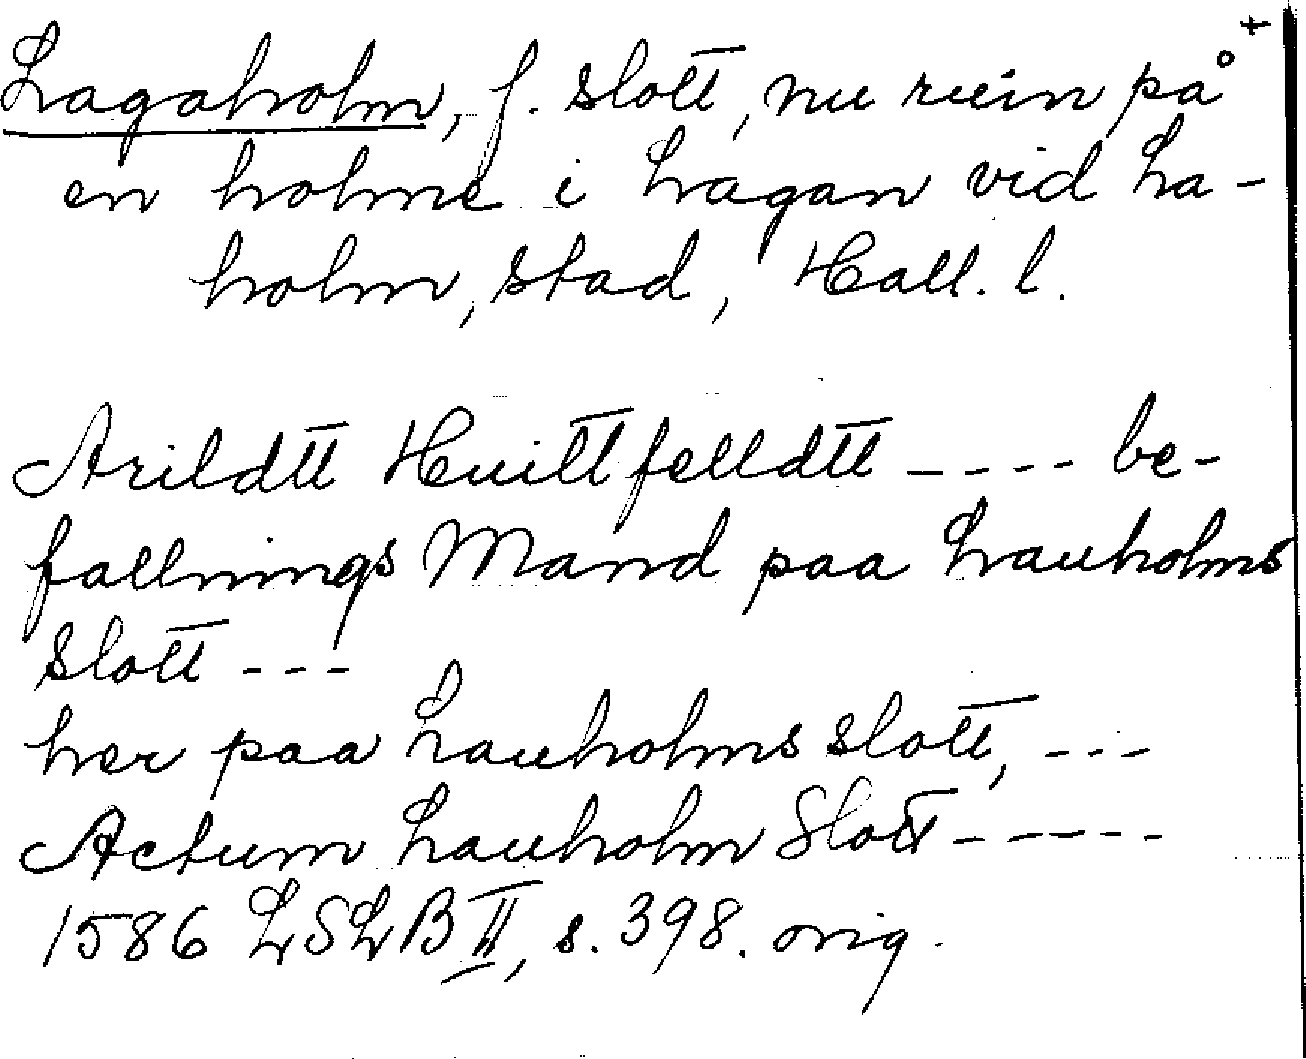 +
Lagaholm, f. slott, nu ruin på
en holme i Lagan vid La-
holm, stad, Hall. l.
Arildtt Huittfelldtt ---- be-
fallnings Mand paa Lauholms
slott ---
her paa Lauholms slott, ---
Actum Lauholm Slott -----
1586 LSLB II, s. 398. orig.